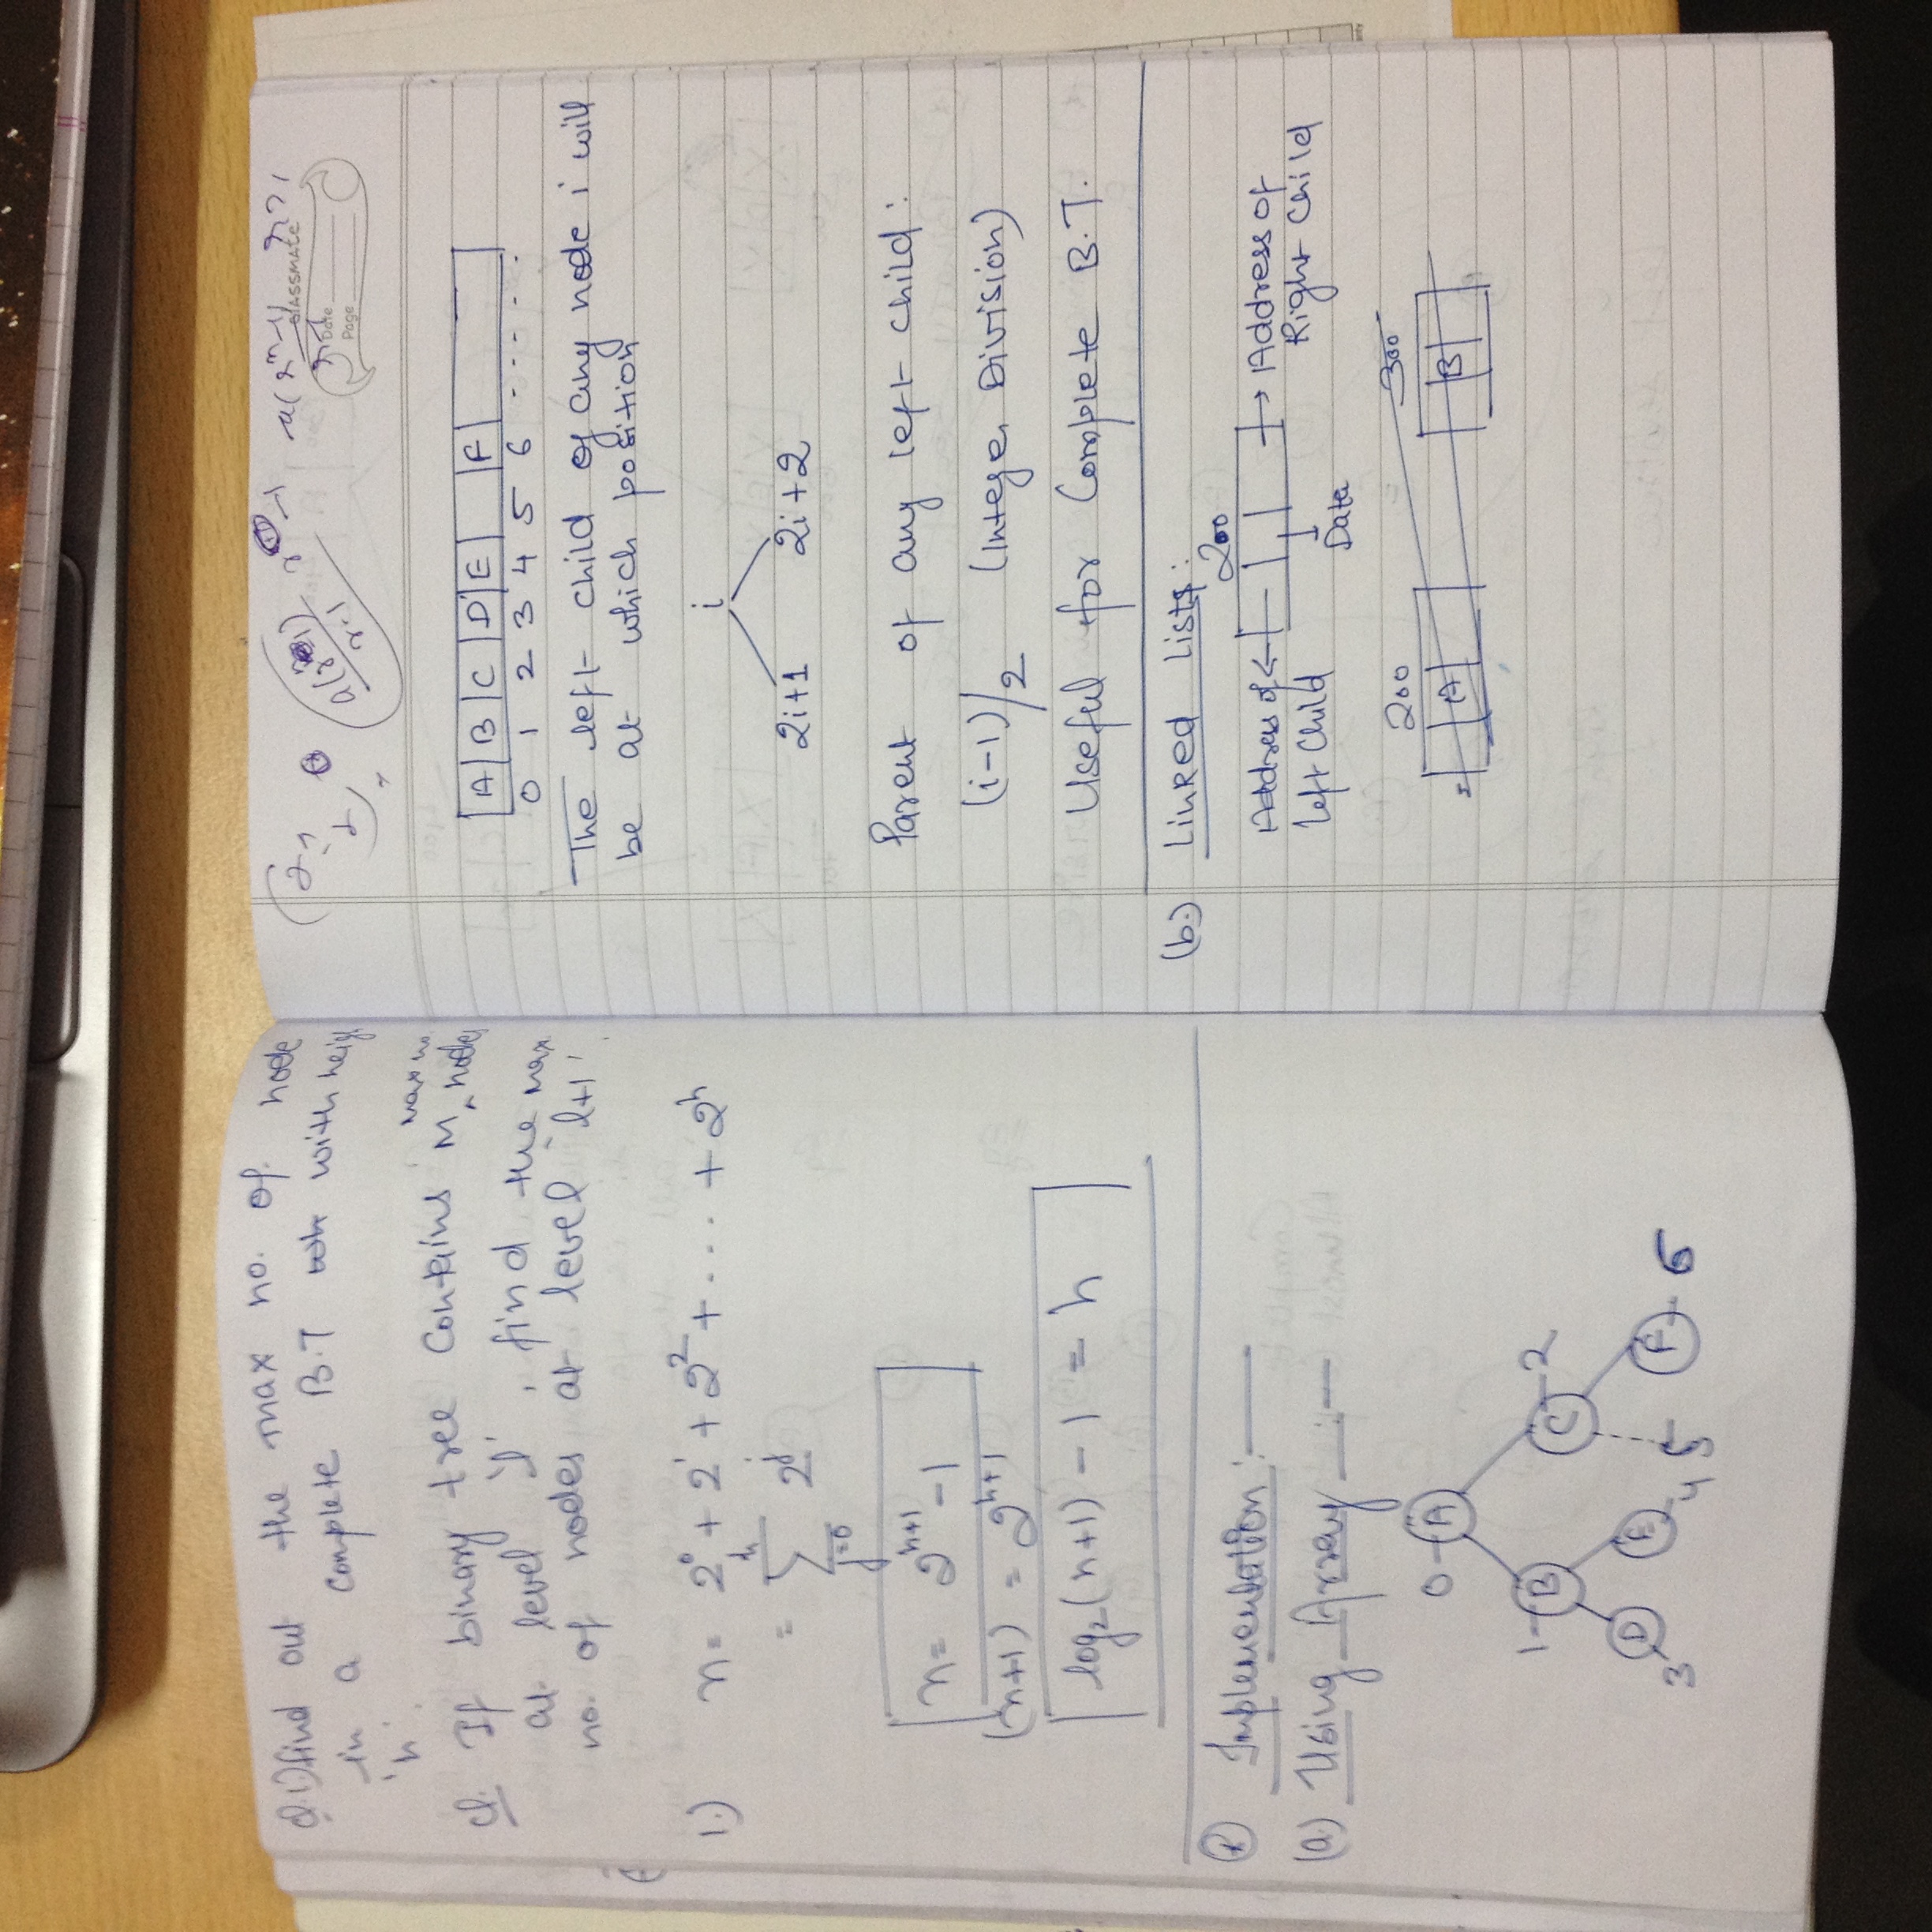 Q.1) find out the max no. of. node
-in a complete B.T with heig
'h'.
Q. If binary tree contains 'M' max no nodes
at level 'l', find the max
no. of nodes at level 'l+1'.
1.) n = 2⁰ + 2¹ + 2² + .... + 2ʰ
= Σ 2ʲ
h
j=0
n = 2ʰ⁺¹ - 1
(n+1) = 2ʰ⁺¹
log₂(n+1) - 1 = h
Implementation :—
(a.) Using Array —:—
0 - A
1 - B C - 2
3 D E F
4 5 6
classmate
Date
Page
A B C D E F
0 1 2 3 4 5 6 - - - - .
The left child of any node i will
be at which position
i
2i+1 2i+2
Parent of any left child :
(i-1)/2 (Integer Division)
Useful for Complete B.T.
(b.) Linked Lists :
200
Address of ← → Address of
Left Child Right Child
Data
200 300
A B